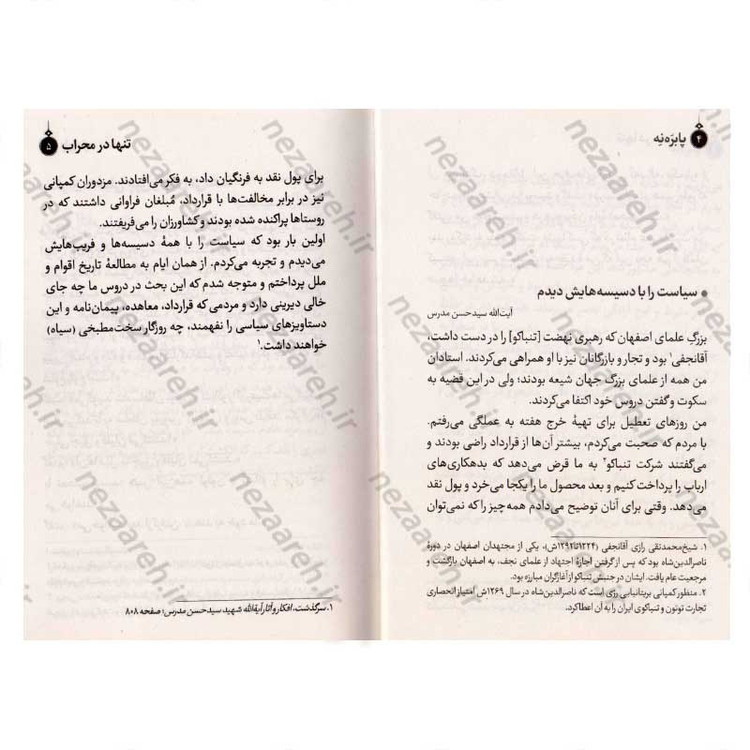 ۴ پابرَه‌نِه
سیاست را با دسیسه‌هایش دیدم
آیت‌الله سیدحسن مدرس
بزرگِ علمای اصفهان که رهبری نهضت [تنباکو] را در دست داشت،
آقانجفی۱ بود و تجار و بازرگانان نیز با او همراهی می‌کردند. استادان
من همه از علمای بزرگ جهان شیعه بودند؛ ولی در این قضیه به
سکوت و گفتن دروس خود اکتفا می‌کردند.
من روزهای تعطیل برای تهیهٔ خرج هفته به عملگی می‌رفتم.
با مردم که صحبت می‌کردم، بیشتر آن‌ها از قرارداد راضی بودند و
می‌گفتند شرکت تنباکو۲ به ما قرض می‌دهد که بدهکاری‌های
ارباب را پرداخت کنیم و بعد محصول ما را یکجا می‌خرد و پول نقد
می‌دهد. وقتی برای آنان توضیح می‌دادم همه‌چیز را که نمی‌توان
۱. شیخ‌محمدتقی رازی آقانجفی (۱۲۲۴تا۱۲۹۲ش)، یکی از مجتهدان اصفهان در دورهٔ
ناصرالدین‌شاه بود که پس از گرفتن اجازهٔ اجتهاد از علمای نجف، به اصفهان بازگشت و
مرجعیت عام یافت. ایشان در جنبش تنباکو از آغازگران مبارزه بود.
۲. منظور کمپانی بریتانیایی رژی است که ناصرالدین‌شاه در سال ۱۲۶۹ش امتیاز انحصاری
تجارت توتون و تنباکوی ایران را به آن اعطا کرد.
تنها در محراب ۵
برای پول نقد به فرنگیان داد، به فکر می‌افتادند. مزدوران کمپانی
نیز در برابر مخالفت‌ها با قرارداد، مُبلغان فراوانی داشتند که در
روستاها پراکنده شده بودند و کشاورزان را می‌فریفتند.
اولین بار بود که سیاست را با همهٔ دسیسه‌ها و فریب‌هایش
می‌دیدم و تجربه می‌کردم. از همان ایام به مطالعهٔ تاریخ اقوام و
ملل پرداختم و متوجه شدم که این بحث در دروس ما چه جای
خالی دیرینی دارد و مردمی که قرارداد، معاهده، پیمان‌نامه و این
دستاویزهای سیاسی را نفهمند، چه روزگار سخت‌مطبخی (سیاه)
خواهند داشت.۱
۱. سرگذشت، افکار و آثار آیة‌الله شهید سیدحسن مدرس؛ صفحه ۸۰۸
nezaareh.ir